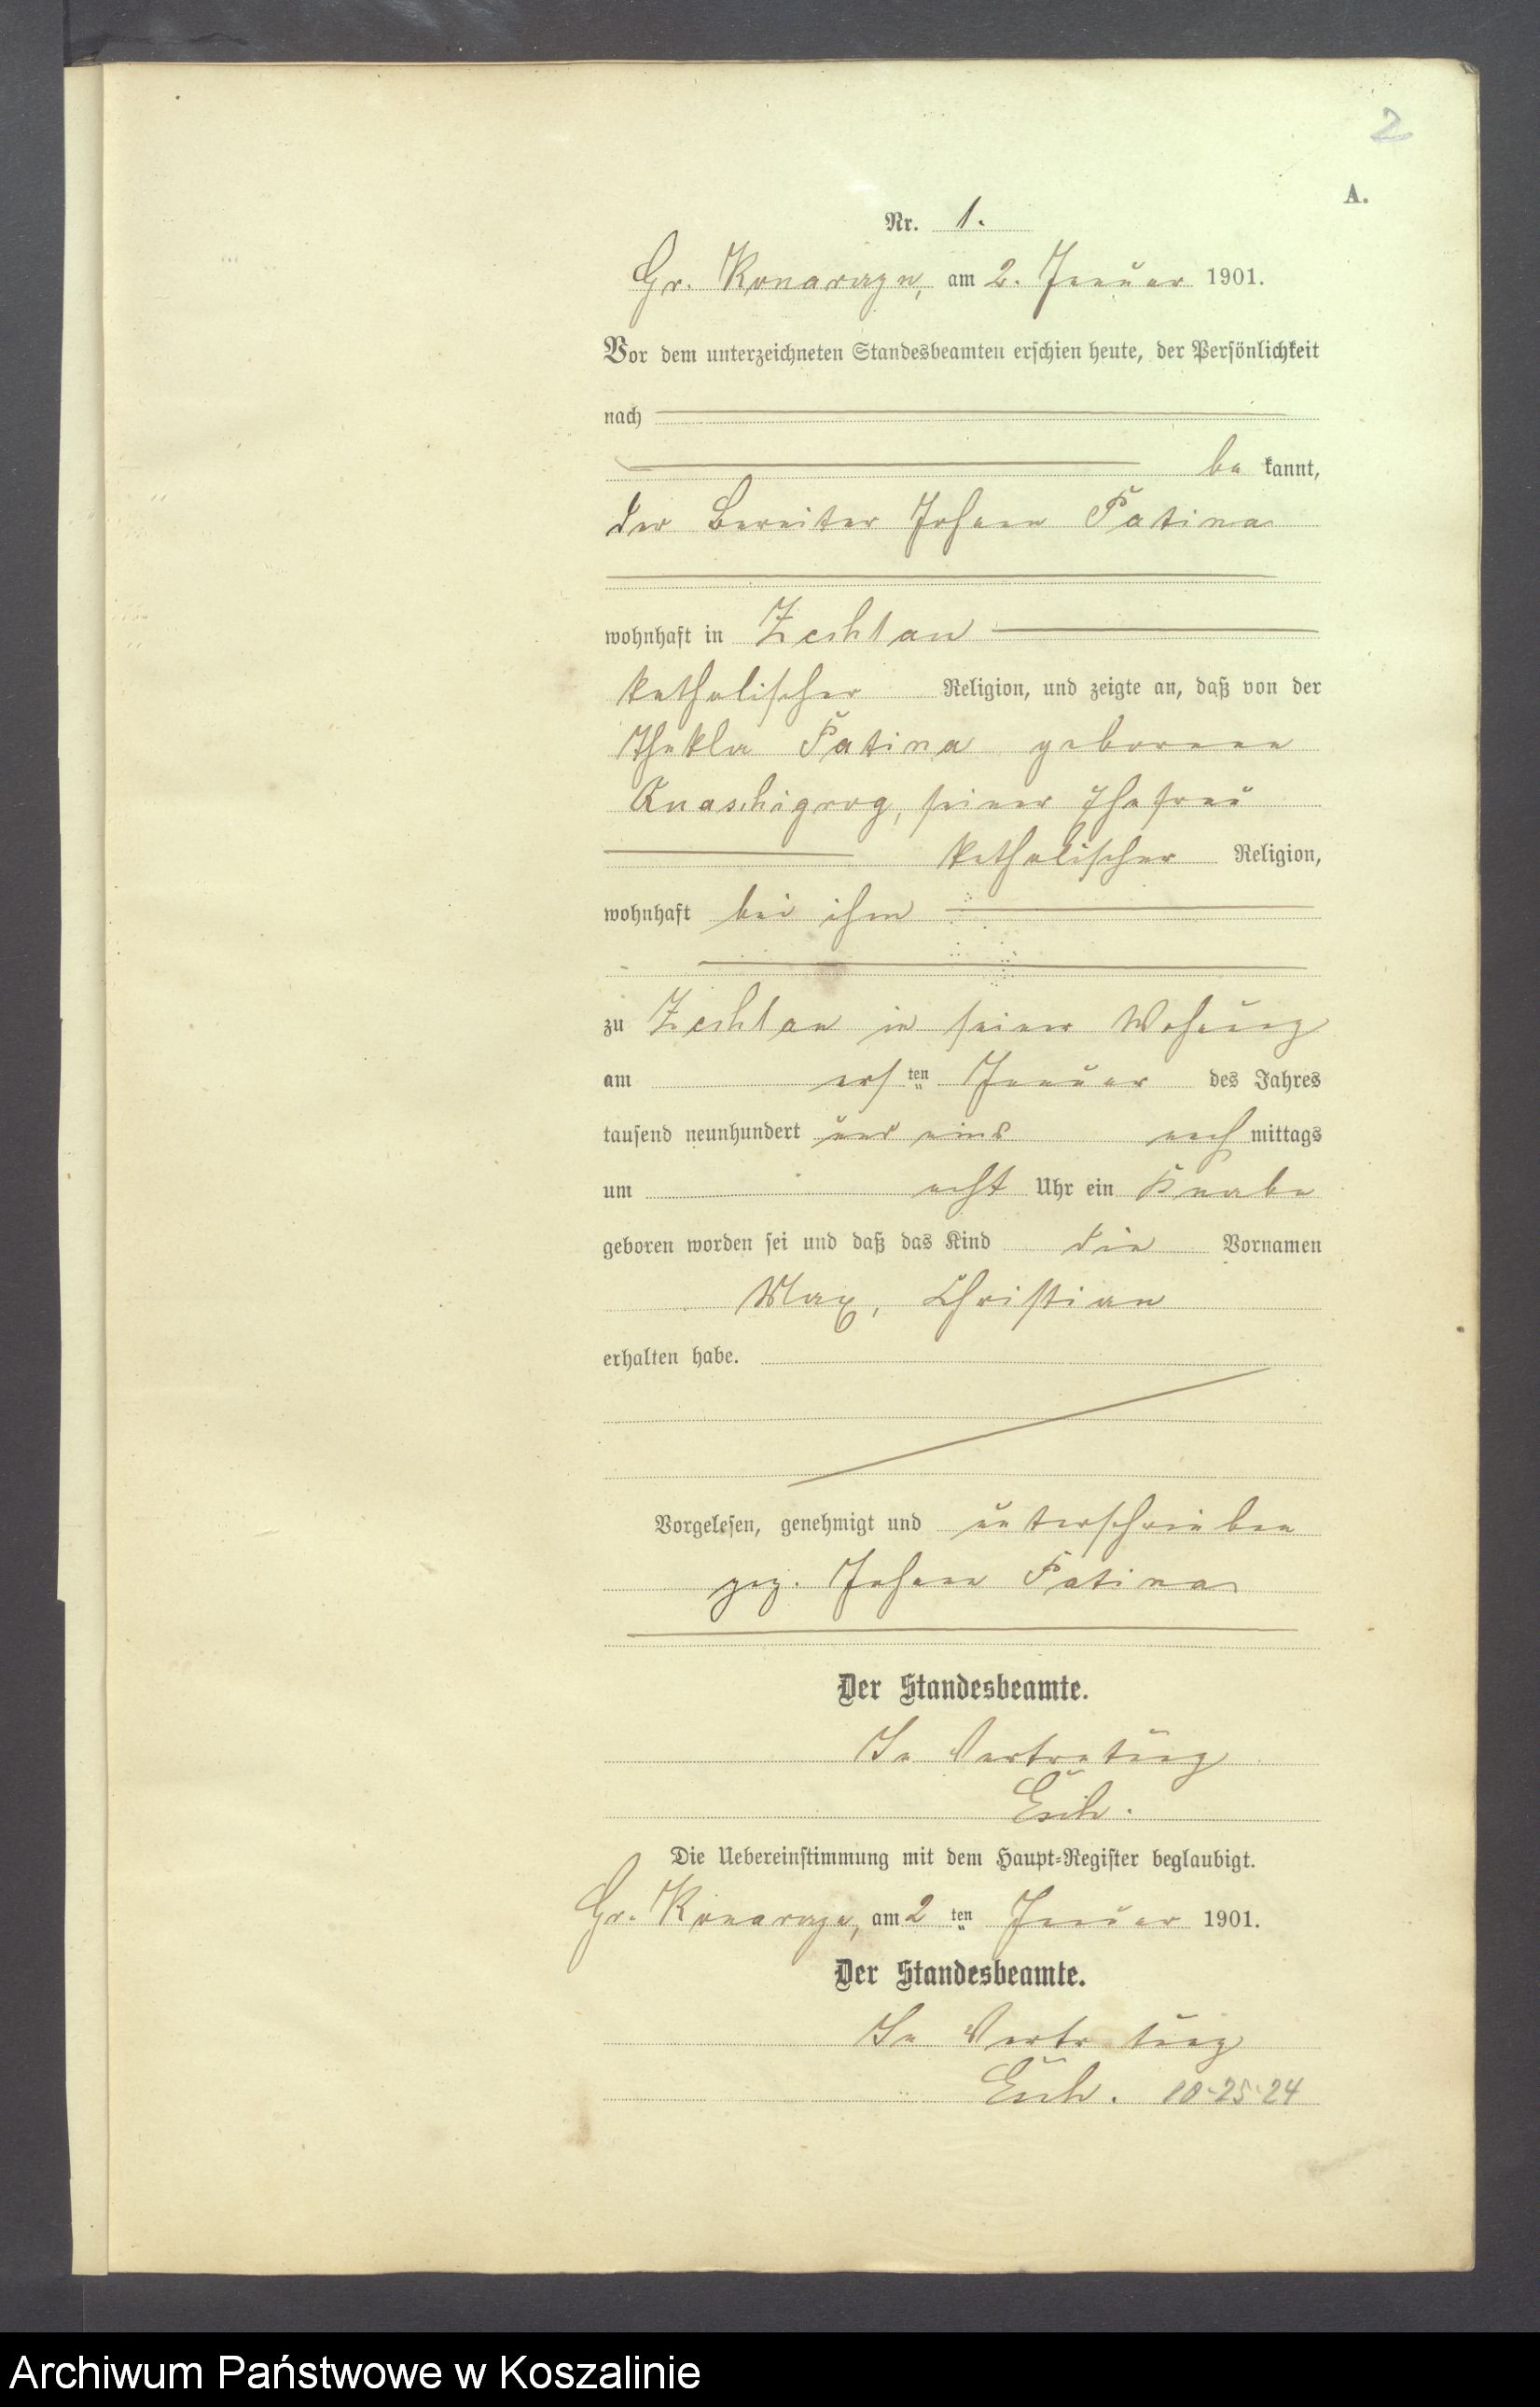 2
A.
Nr. 1.
Gr. Konarczyn, am 2. Januar 1901.
Vor dem unterzeichneten Standesbeamten erschien heute, der Persönlichkeit
nach
be kannt,
der Bereiter Johann Patina
wohnhaft in Zechlau
katholischer Religion, und zeigte an, daß von der
Thekla Patina geborenen
seiner Ehefrau
katholischer Religion,
wohnhaft bei ihm
zu Zechlau in seiner Wohnung
am ersten Januar des Jahres
tausend neunhundert und eins nachmittags
um acht Uhr ein Knabe
geboren worden sei und daß das Kind die Vornamen
Max, Christian
erhalten habe.
Vorgelesen, genehmigt und unterschrieben
gez. Johann Patina
Der Standesbeamte.
In Vertretung
Die Uebereinstimmung mit dem Haupt-Register beglaubigt.
Gr. Konarczyn, am 2ten Januar 1901.
Der Standesbeamte.
In Vertretung
10-25-24
Archiwum Państwowe w Koszalinie